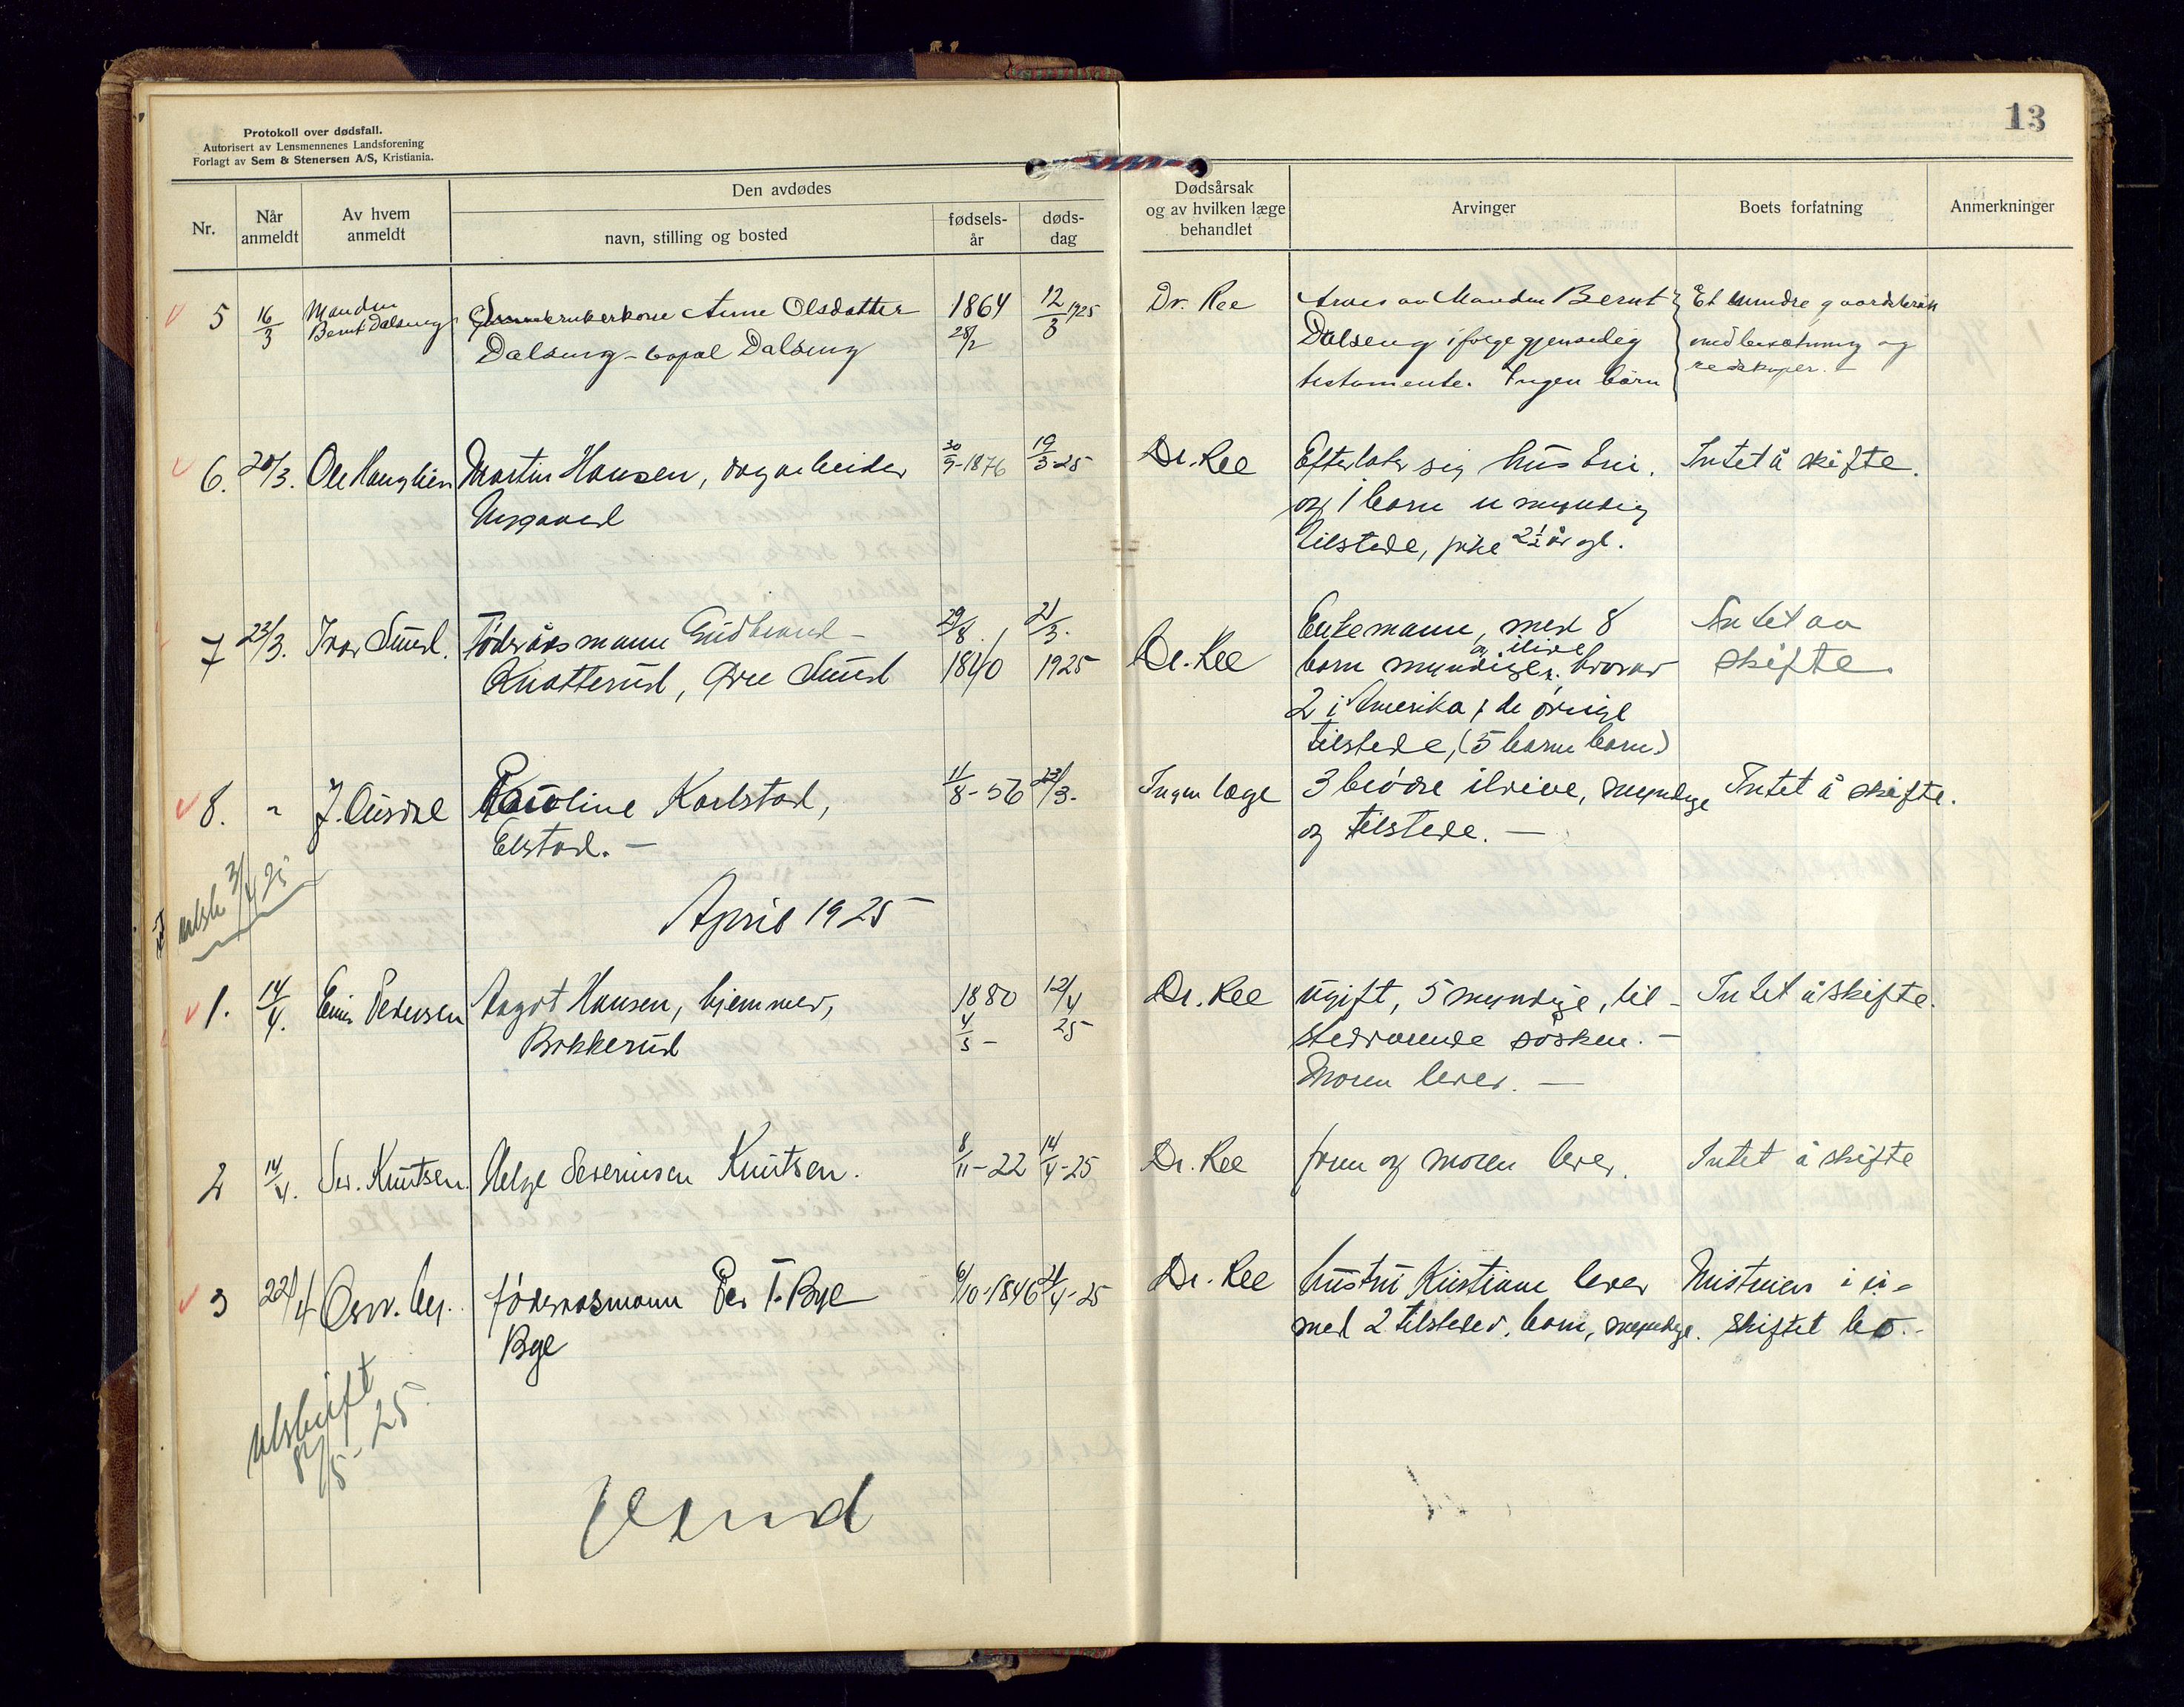 13
Protokoll over dødsfall.
Autorisert av Lensmennenes Landsforening
Forlagt av Sem & Stenersen A/S, Kristiania.
Nr.
Når
anmeldt
Av hvem
anmeldt
Den avdødes
navn, stilling og bosted
fødsels-
år
døds-
dag
Dødsårsak
og av hvilken læge
behandlet
Arvinger
Boets forfatning
Anmerkninger
5 16/3 Manden Bernt Dalseng
Anne Olsdatter
Dalseng - bopæl Dalseng
1864
28/2
12/3 1925
Dr. Ree
Arves av Manden Bernt
Dalseng ifølge gjensidig
testamente. Ingen børn
Et mindre gaardsbruk
med besætning og
redskaper.
6. 20/3. Ole Hauglien Martin Hansen, dagarbeider
30/9-1876 19/3-25 Dr. Ree
Efterlater sig hustru.
og 1 barn umyndig
tilstede, pike 2½ år gl.
Intet å skifte.
7 23/3. Ivar Sund. Føderåsmann Gudbrand
Knatterud, Øvre Sund
29/8. 1840 21/3. 1925 Dr. Ree
Enkemann, med 8
barn myndige, og ilive hvorav
2 i Amerika, de øvrige
tilstede, (5 barnebarn)
Intet aa
skifte.
8. " Karlstad,
Elstad. —
11/8-56 23/3. Ingen læge
3 brødre ilive, myndige
og tilstede. —
Intet å skifte.
April 1925
1. 14/4. Pedersen Aagot Hansen, hjemmev,
Bakkerud
1880
12/4 25
Dr. Ree
Ugift, 5 myndige, til-
stedværende søsken. —
Moren lever. —
Intet å skifte.
2 14/4. Sev. Knutsen. Helge Severinsen Knutsen.
8/11-22 14/4-25 Dr. Ree
far og moren lever.
Intet å skifte
3 22/4 føderaasmann Per T. Bye
Bye
6/10-1846 21/4-25 Dr. Ree
hustru Kristiane lever
med 2 tilstedev. barn, myndige.
Hustruen i u-
skiftet bo.-
Utskrift
8/5-25
Vend